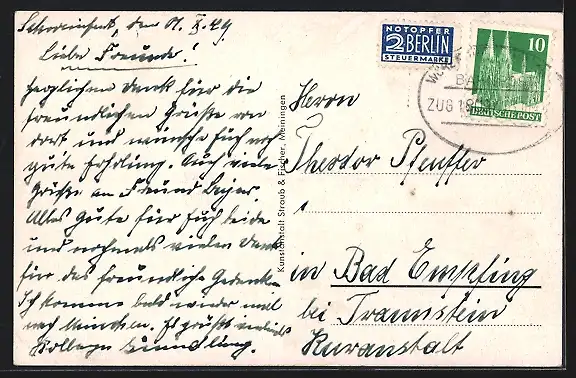 Schweinfurt, den 01. X. 49
Liebe Freunde!
Herzlichen Dank für die
freundlichen Grüße von
dort und wünsche Euch noch
gute Erholung. Auch viele
Grüße an Freund
Alles Gute für Euch beide
und nochmals vielen Dank
für das freundliche Gedenken.
Ich komme bald wieder mal
nach München. Es grüßt
Kollege
Kunstanstalt Straub & Fischer, Meiningen
NOTOPFER
2 BERLIN
STEUERMARKE
10
DEUTSCHE POST
BA
ZUG
Herrn
Theodor Pfeuffer
in Bad Empfing
bei Traunstein
Kuranstalt